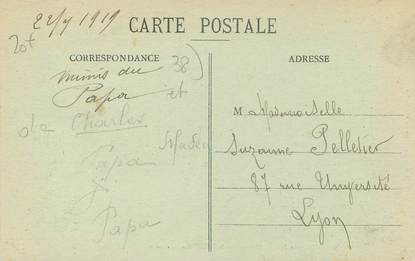 22/7 1919
CARTE POSTALE
CORRESPONDANCE
38)
du
Papa et
Charles
Papa
Papa
ADRESSE
M Mademoiselle
Suzanne Pelletier
87 rue Université
Lyon